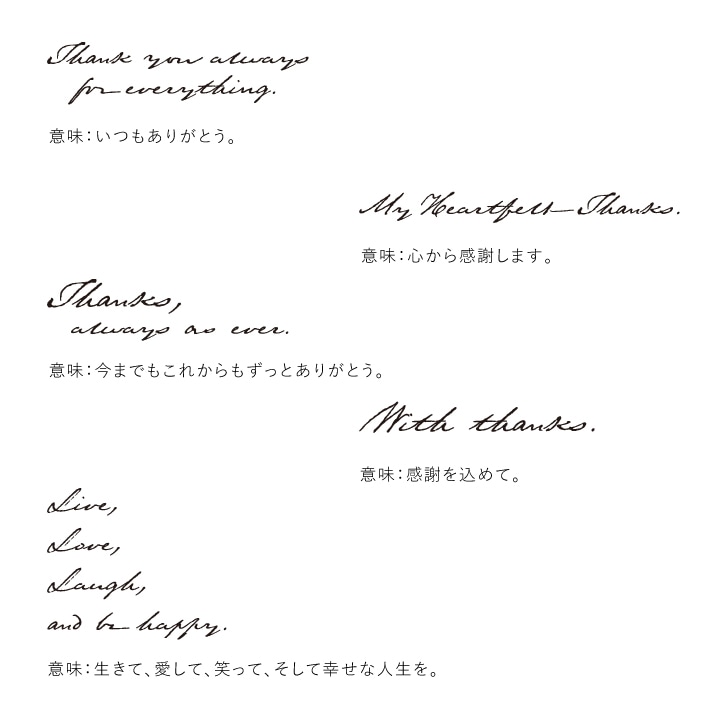 Thank you always
for everything.
意味：いつもありがとう。
My Heartfelt Thanks.
意味：心から感謝します。
Thanks,
always as ever.
意味：今までもこれからもずっとありがとう。
With thanks.
意味：感謝を込めて。
Live,
Love,
Laugh,
and be happy.
意味：生きて、愛して、笑って、そして幸せな人生を。